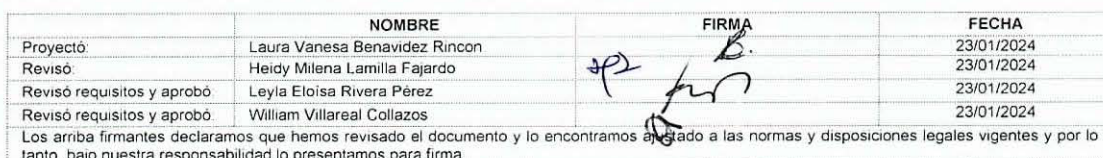 NOMBRE FIRMA FECHA
Proyectó: Laura Vanesa Benavidez Rincon 23/01/2024
Revisó: Heidy Milena Lamilla Fajardo 23/01/2024
Revisó requisitos y aprobó: Leyla Eloísa Rivera Pérez 23/01/2024
Revisó requisitos y aprobó: William Villareal Collazos 23/01/2024
Los arriba firmantes declaramos que hemos revisado el documento y lo encontramos ajustado a las normas y disposiciones legales vigentes y por lo
tanto, bajo nuestra responsabilidad lo presentamos para firma